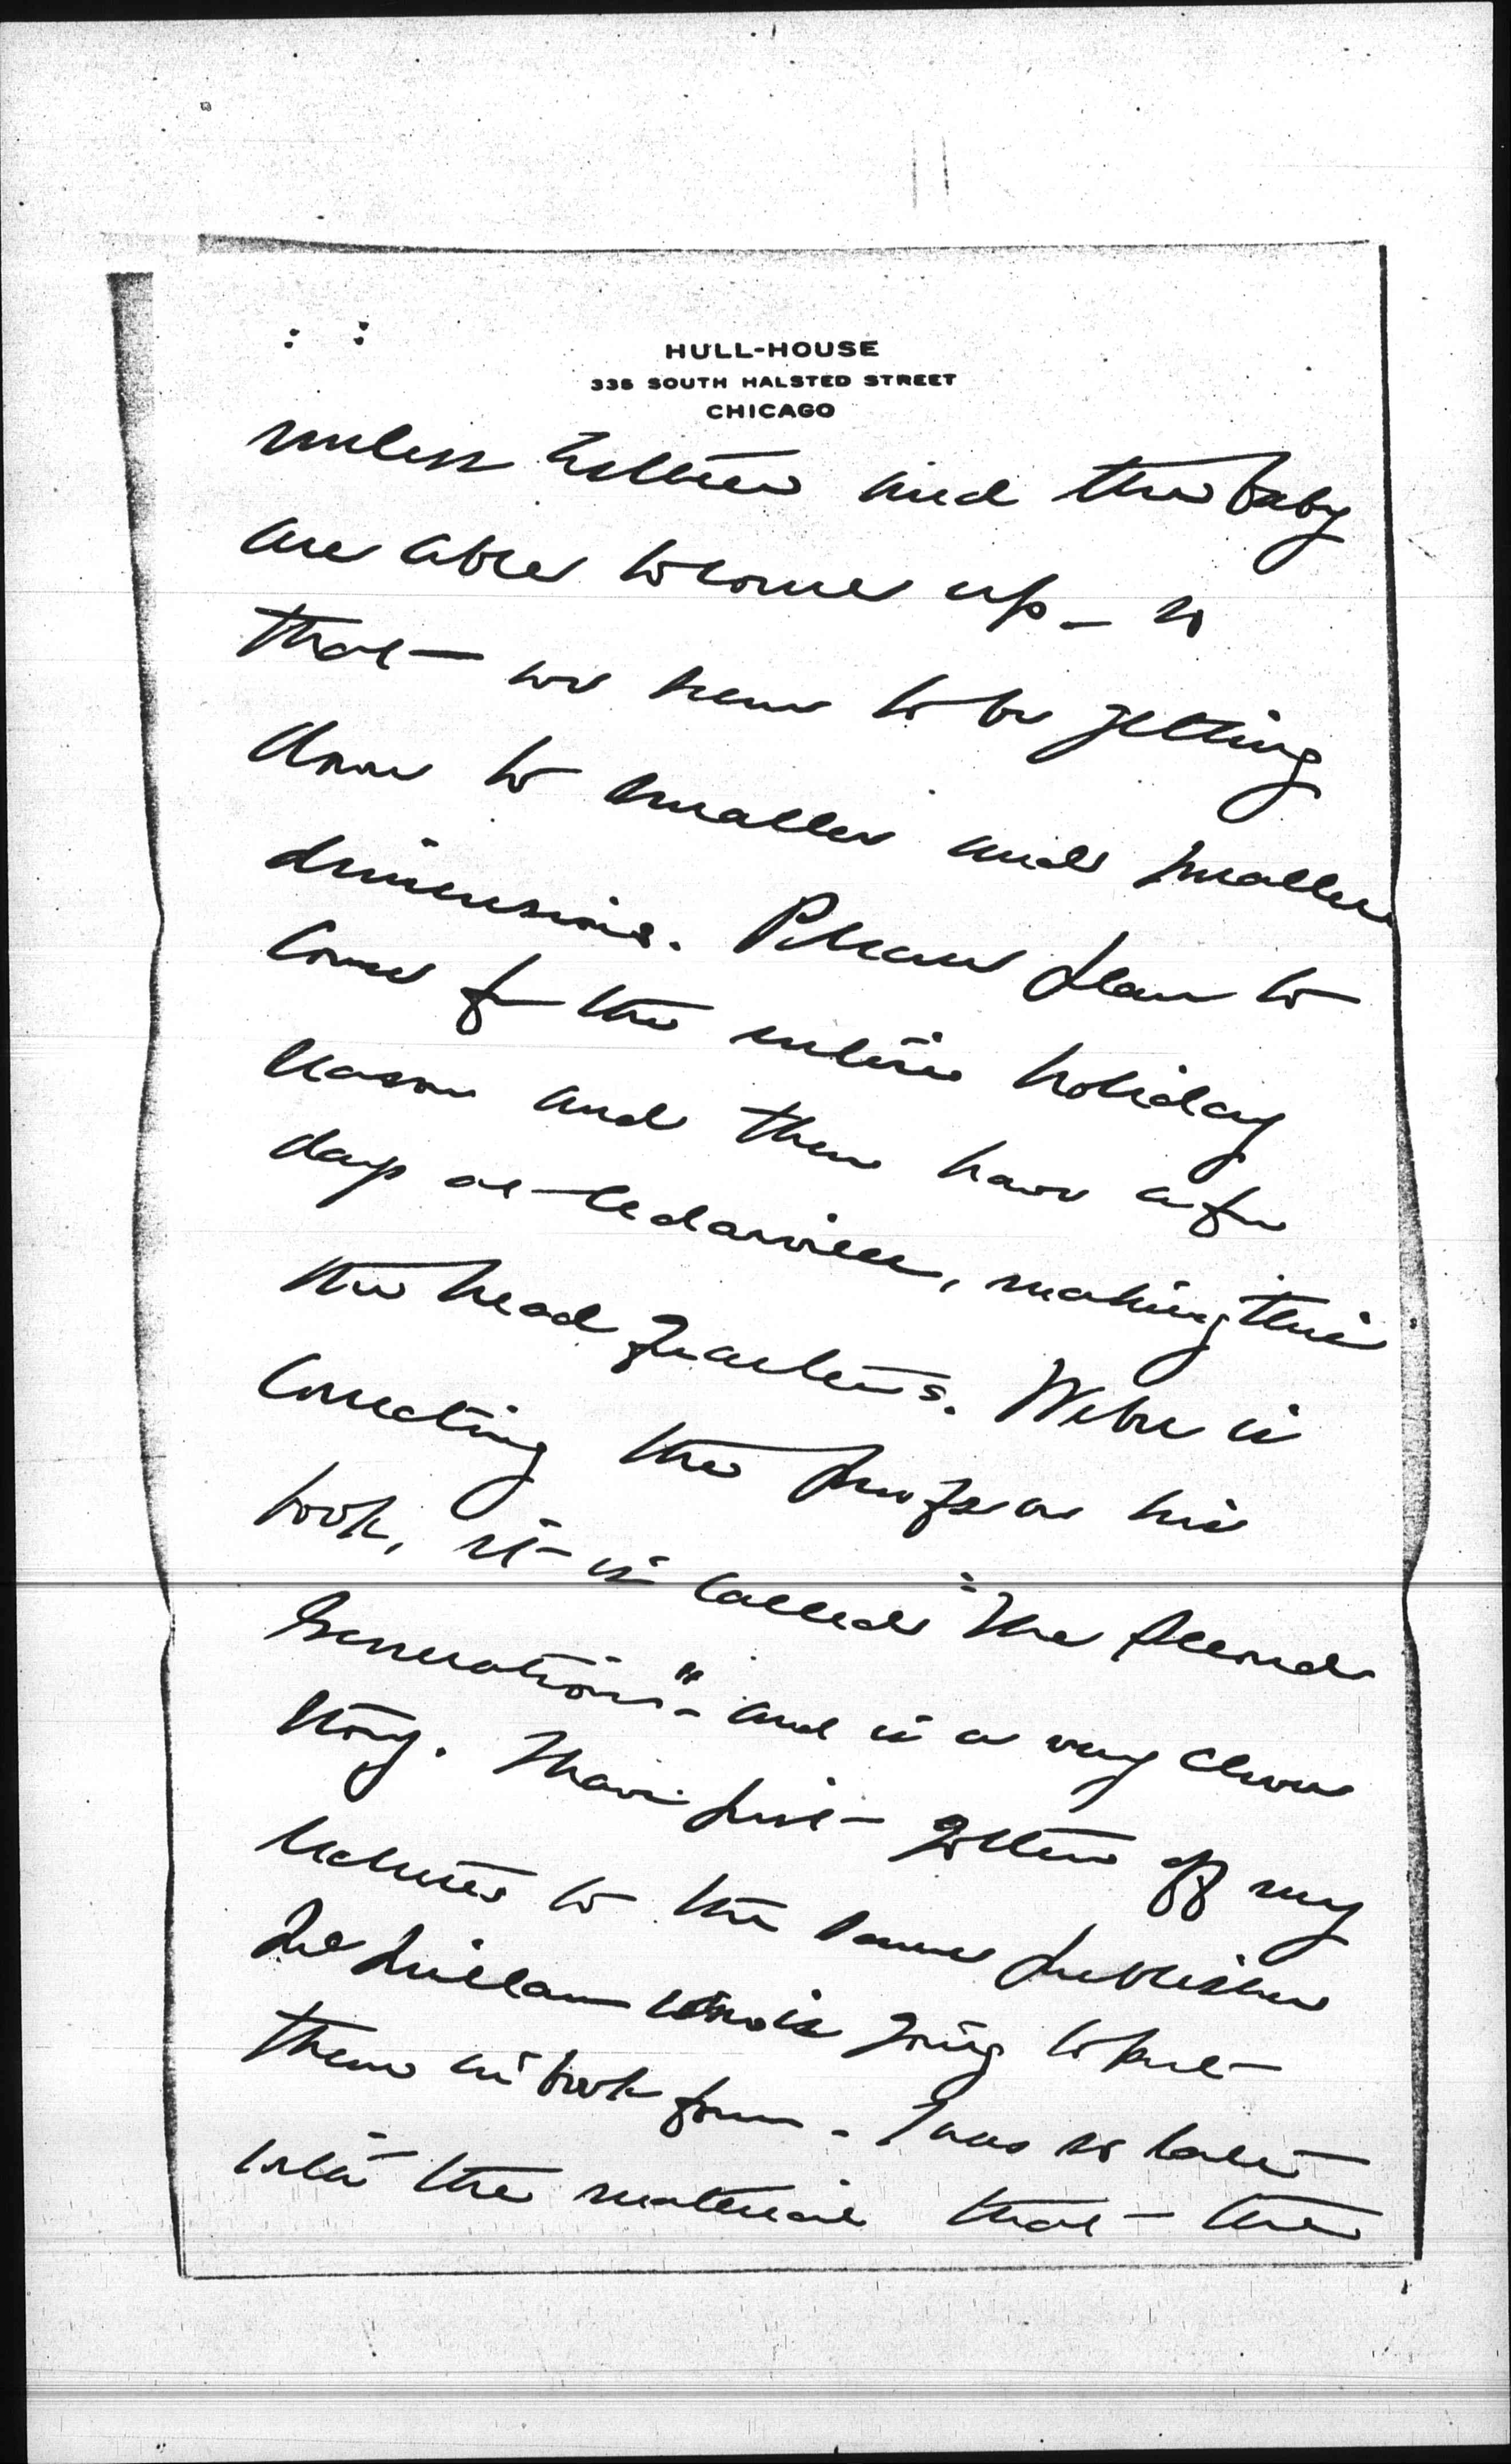 HULL-HOUSE
335 SOUTH HALSTED STREET
CHICAGO
unless and the baby
are able to come up — so
that — we seem to be getting
down to smaller and smaller
dimensions. Please plan to
come for the entire holiday
season and then have a few
days at Cedarville, making this
the head quarters. Weber is
correcting the proofs on his
book, it is called "The Second
Generation" — and is a very clever
story. I have just gotten off my
lectures to the same publisher
McMillan who is going to put
them in book form. I was so late
with the material that — the